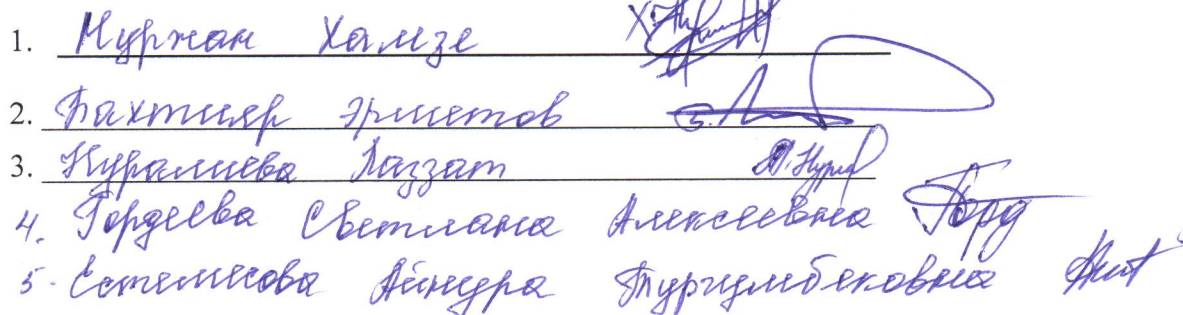 1. Нуржан Хамзе
2. Бахтияр Эрметов
3. Нуралиева Лаззат А. Нурал
4. Гордеева Светлана Алексеевна Горд
5. Естемесова Айнура Тургумбековна